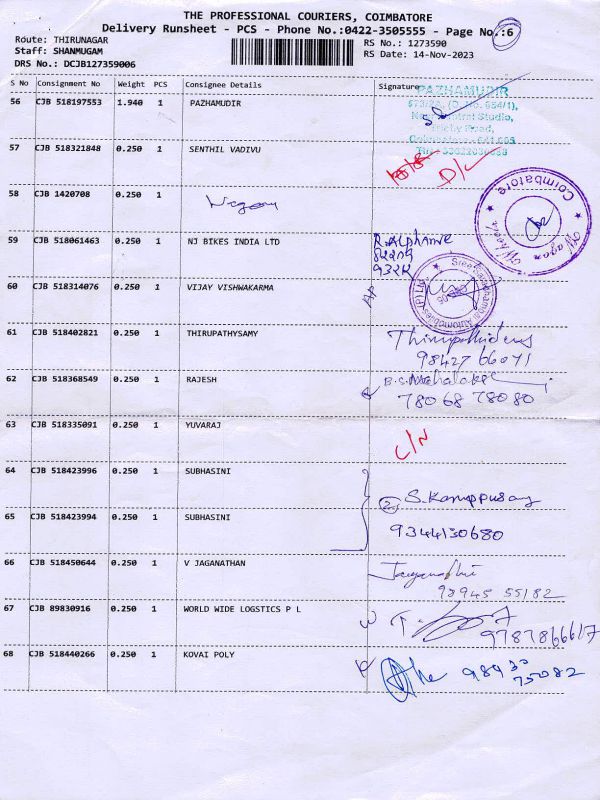 THE PROFESSIONAL COURIERS, COIMBATORE
Delivery Runsheet - PCS - Phone No.:0422-3505555 - Page No.:6
Route: THIRUNAGAR
Staff: SHANMUGAM
DRS No.: DCJB127359006
RS No.: 1273590
RS Date: 14-Nov-2023
S No Consignment No Weight PCS Consignee Details Signature
56 CJB 518197553 1.940 1 PAZHAMUDIR
PAZHAMUDIR
57 CJB 518321848 0.250 1 SENTHIL VADIVU
D/L
58 CJB 1420708 0.250 1
Coimbatore
59 CJB 518061463 0.250 1 NJ BIKES INDIA LTD
60 CJB 518314076 0.250 1 VIJAY VISHWAKARMA
61 CJB 518402821 0.250 1 THIRUPATHYSAMY
98427 66071
62 CJB 518368549 0.250 1 RAJESH
78068 78080
63 CJB 518335091 0.250 1 YUVARAJ
C/N
64 CJB 518423996 0.250 1 SUBHASINI
2 S. Karuppusay
65 CJB 518423994 0.250 1 SUBHASINI
9344130680
66 CJB 518450644 0.250 1 V JAGANATHAN
98945 55182
67 CJB 89830916 0.250 1 WORLD WIDE LOGSTICS P L
9787866617
68 CJB 518440266 0.250 1 KOVAI POLY